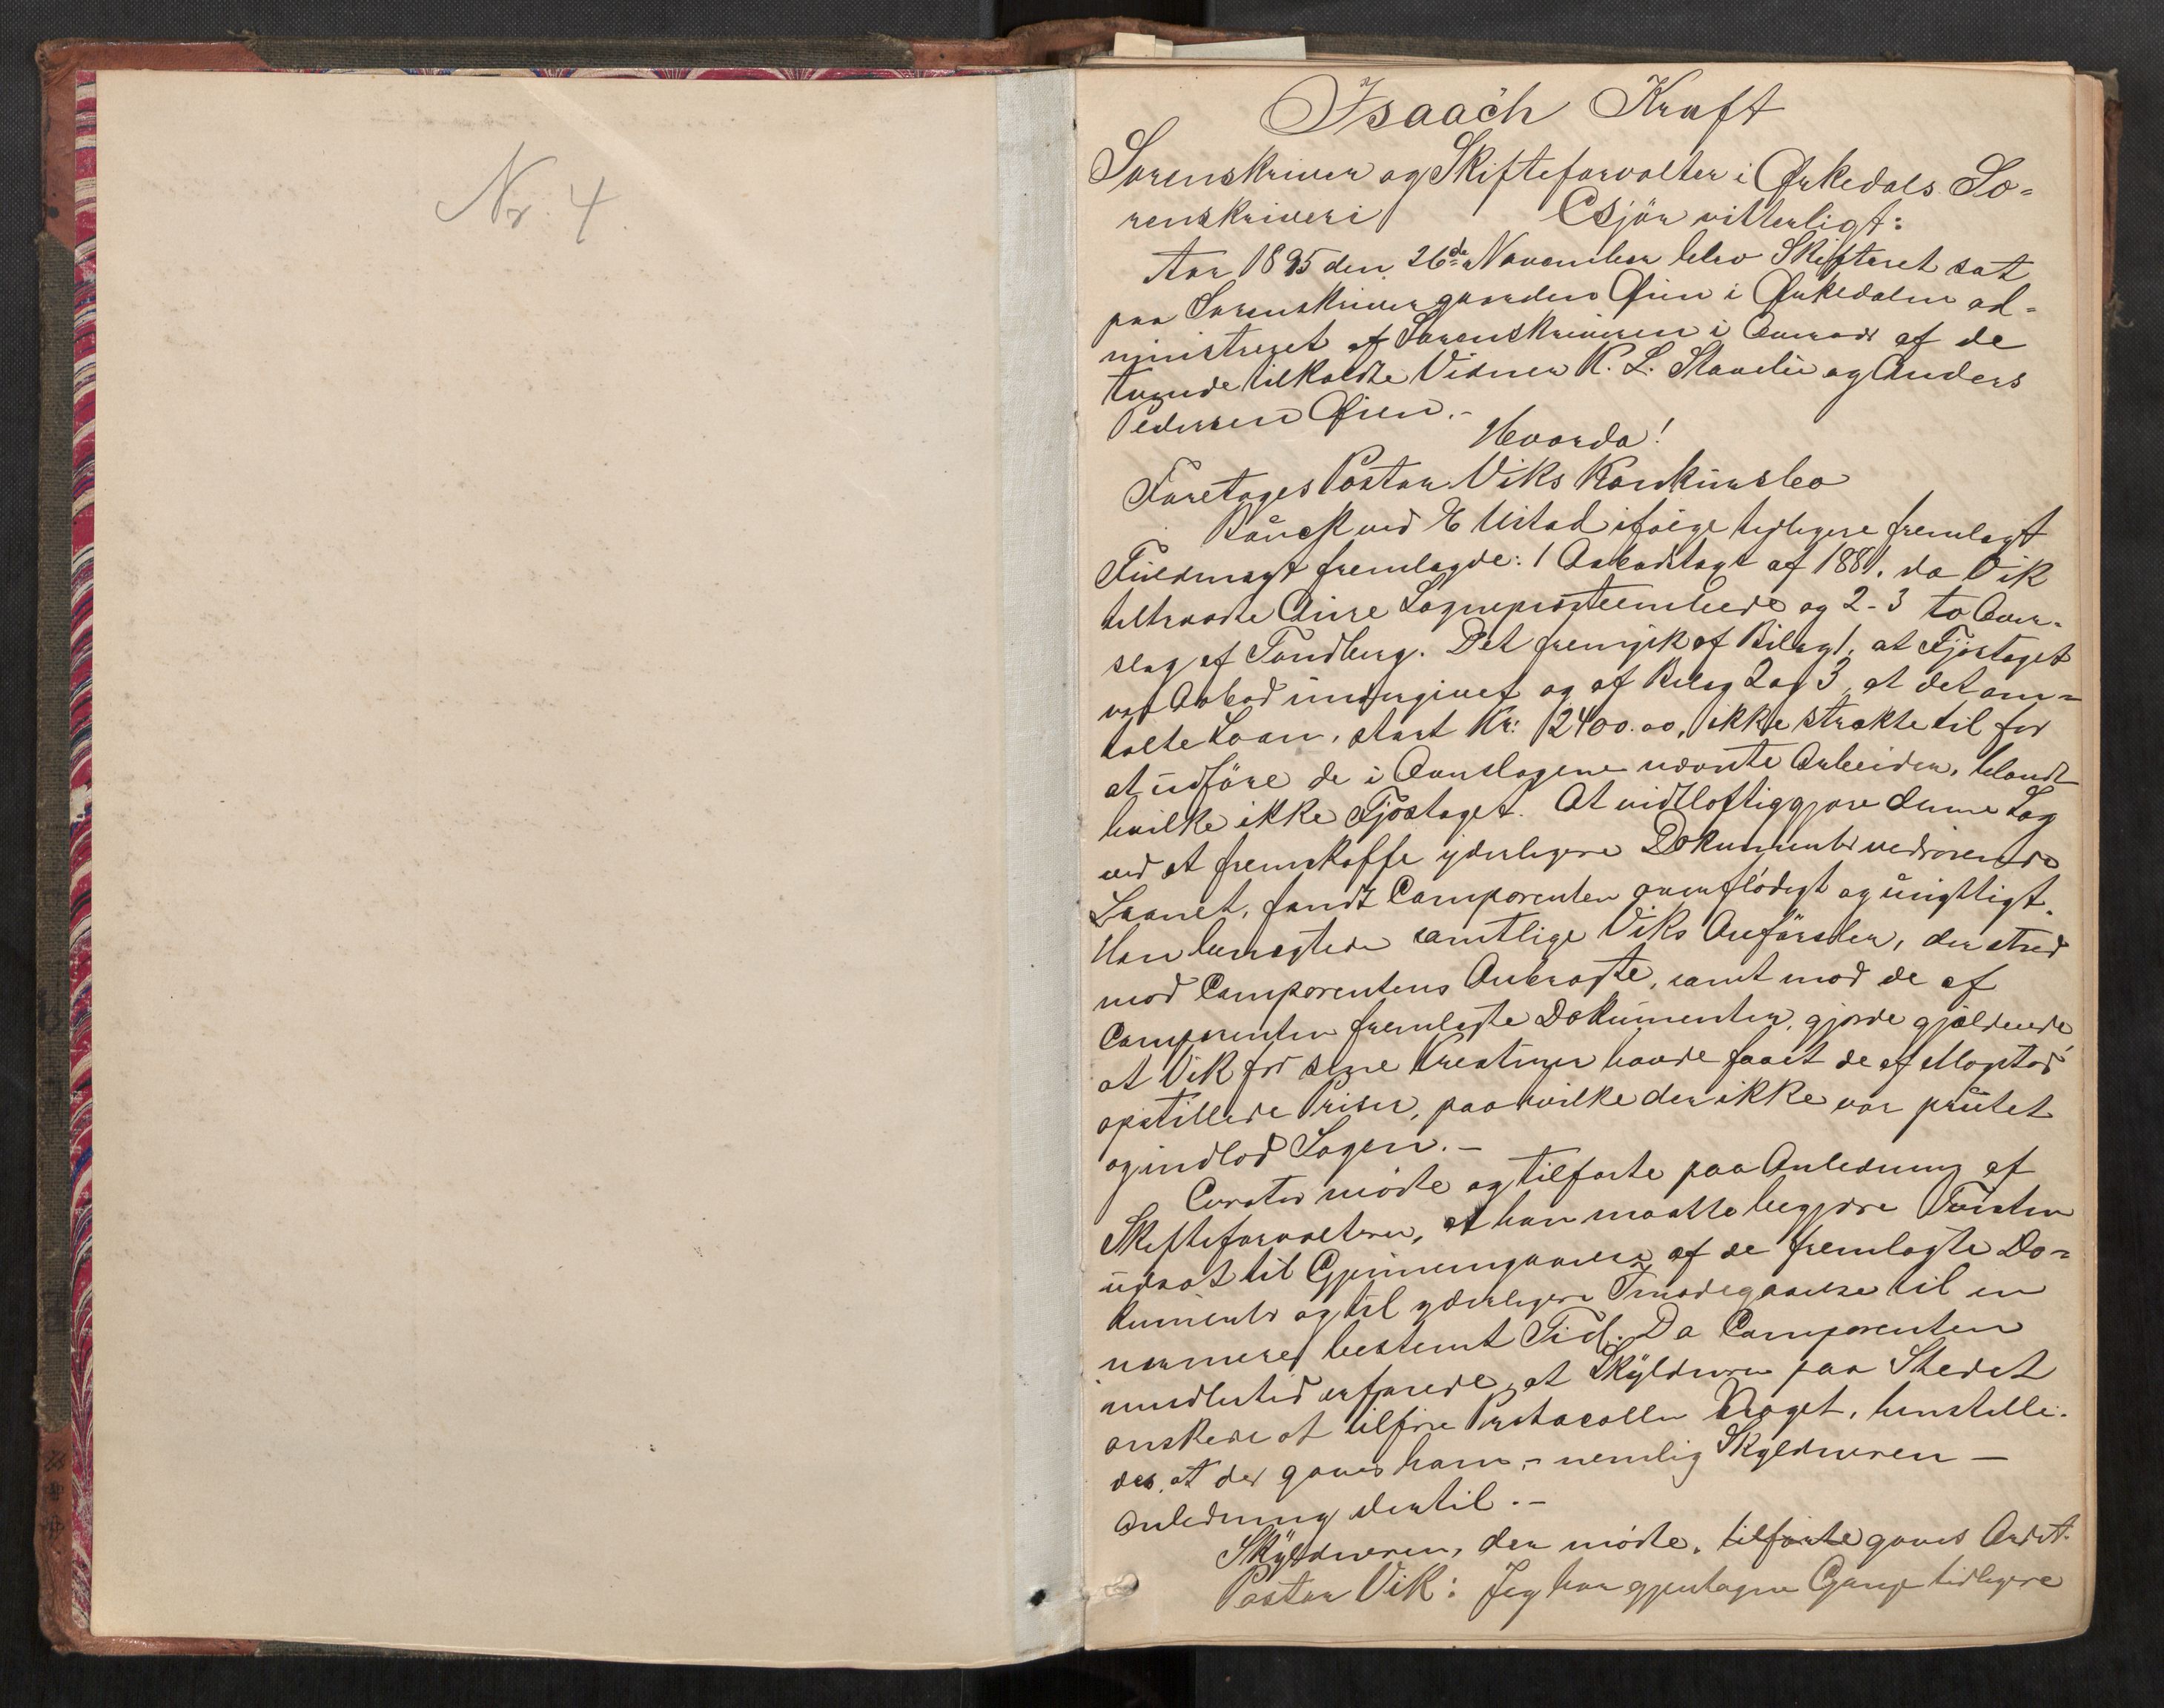 Nr. 4.
Isaach Kraft
Sorenskriver og Skifteforvalter i Ørkedals So-
renskriveri Gjør vitterligt:
Aar 1895 den 26de November blev Skifteret sat
paa Sorenskrivergaarden Øien i Ørkedalen ad-
ministreret af Sorenskriveren i Overvær af de
tvende tilkaldte Vidner K. L. Stavlie og Anders
Pedersen Øien.-
Hvorda!
Foretoges Pastor Viks Konkursbo
Bauck ved E Ustad ifølge tidligere fremlagt
Fuldmagt fremlagde: 1 Aabodstagt af 1881, da Vik
tiltraadte Aure Sogneprestembede og 2-3 to Over-
slag af Tandberg. Det fremgik af Bilag 1, at Fjøstaget
var Aabod undergivet og af Bilag 2 og 3, at det om-
talte Laan, stort Kr: 2400.00, ikke strakte til for
at udføre de i Overslagene nævnte Arbeider, blandt
hvilke ikke Fjøstaget. At vidtløftiggjøre denne Sag
ved at fremskaffe yderligere Dokumenter vedrørende
Laanet, fandt Comparenten overflødigt og unyttigt.
Han benægtede samtlige Viks Anførsler, der stred
mod Comparentens Anbragte, samt mod de af
Comparenten fremlagte Dokumenter, gjorde gjældende
at Vik for sine Kreaturer havde faaet de af Mogstad
opstillede Priser, paa hvilke der ikke var prutet
og indlod Sagen.-
Curator mødte og tilførte paa Anledning af
Skifteforvalteren, at han maatte begjære Sagen
udsat til Gjennemgaaelse af de fremlagte Do-
kumenter og til yderligere Imødegaaelse til en
nærmere bestemt Tid. Da Comparenten
imidlertid erfarede, at Skyldneren paa Stedet
ønskede at tilføre Protocollen Noget, henstille-
des, at der gaves ham - nemlig Skyldneren -
Anledning dertil.-
Skyldneren, der mødte, tilførte gaves Ordet.
Pastor Vik: Jeg har gjentagne Gange tidligere